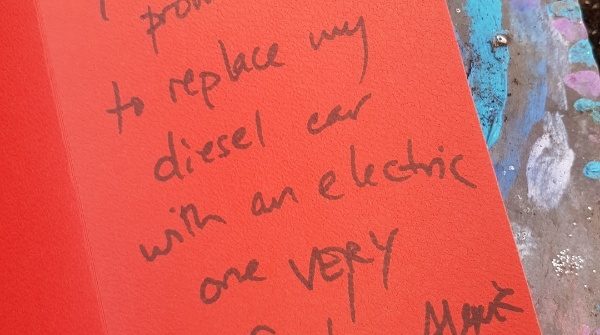 to replace my
diesel car
with an electric
one VERY